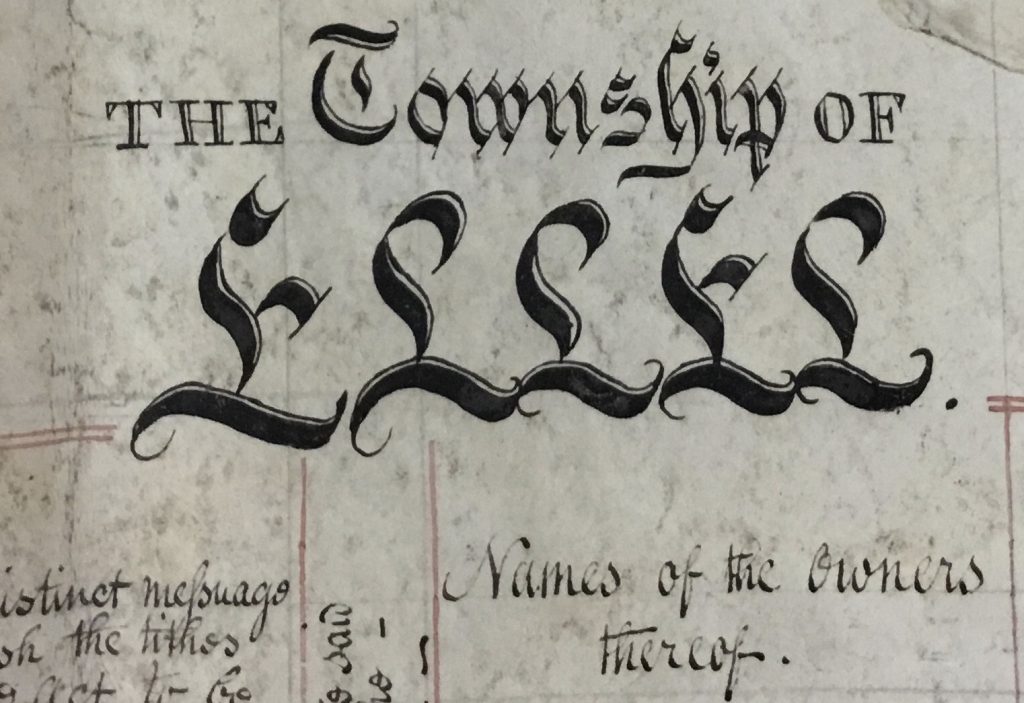 THE Township OF
ELLEL.
istinct meſsuage
the tithes
to be
said
Names of the Owners
thereof.